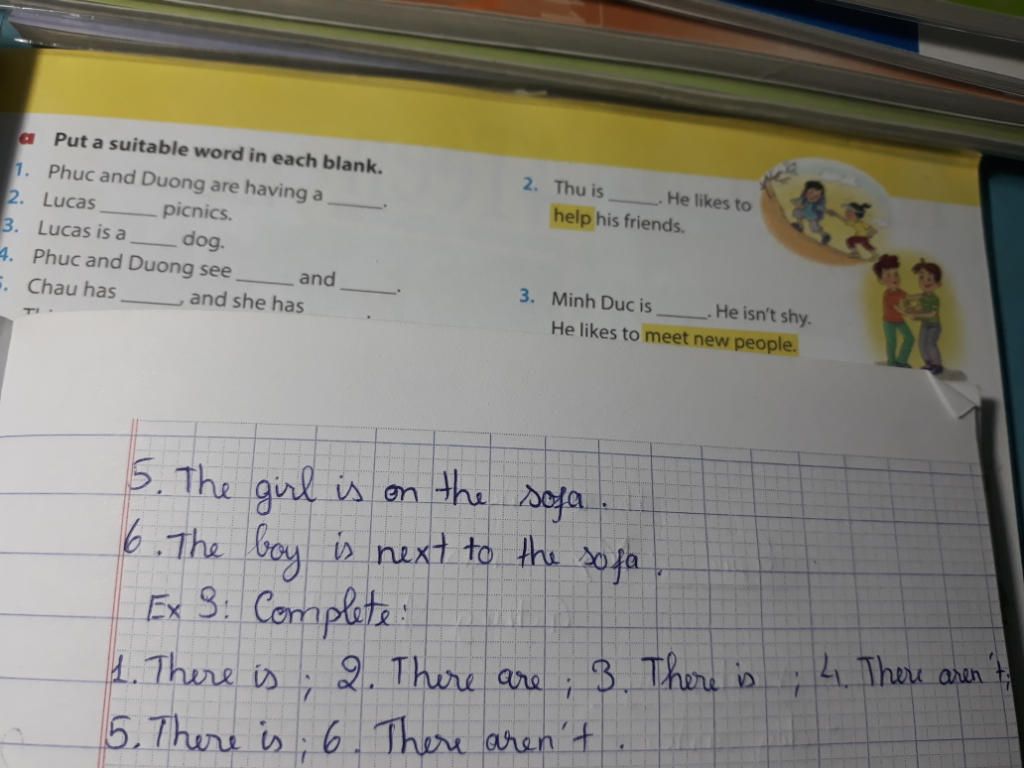 a Put a suitable word in each blank.
1. Phuc and Duong are having a ______.
2. Lucas ______ picnics.
3. Lucas is a _____ dog.
4. Phuc and Duong see ______ and ______.
5. Chau has ______, and she has ______.
2. Thu is ______. He likes to
help his friends.
3. Minh Duc is ______. He isn't shy.
He likes to meet new people.
5. The girl is on the sofa.
6. The boy is next to the sofa.
Ex 3: Complete:
1. There is ; 2. There are ; 3. There is ; 4. There aren't ;
5. There is ; 6. There aren't.